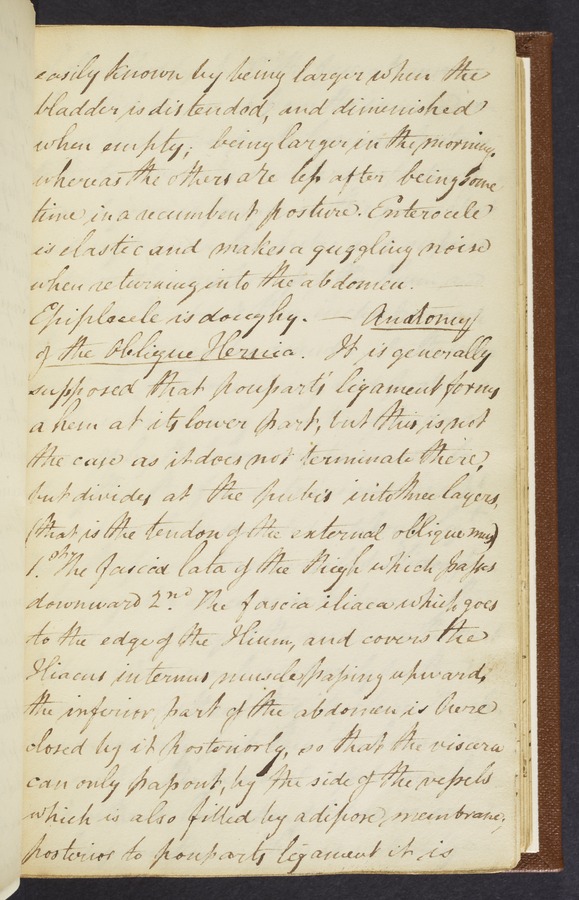 easily known by being larger when the
bladder is distended, and diminished
when empty; being larger in the morning.
whereas the others are less after being some
time in a recumbent posture. Enterocele
is elastic and makes a guggling noise
when returning into the abdomen.
Epiplocele is doughy. — Anatomy
of the Oblique Hernia. It is generally
supposed that pouparts ligament forms
a hem at its lower part, but this is not
the case as it does not terminate there,
but divides at the pubis into three layers,
(that is the tendon of the external oblique mus)
1.st The fascia lata of the thigh which passes
downward 2.nd The fascia iliaca which goes
to the edge of the Ilium, and covers the
Iliacus internus muscle passing upward,
the inferior part of the abdomen is here
closed by it posteriorly, so that the viscera
can only pass out, by the side of the vessels
which is also filled by adipose membrane;
posterior to pouparts ligament it is